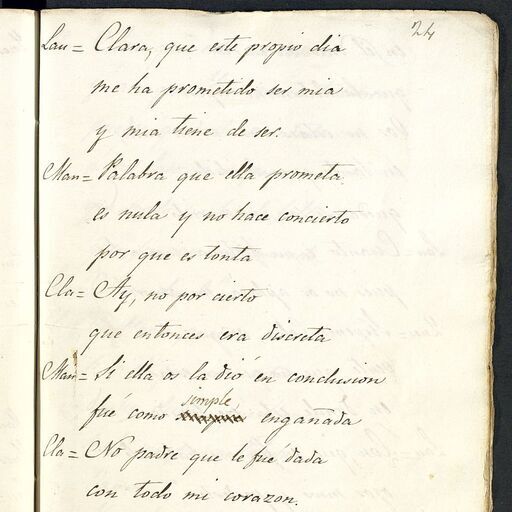 24
Lau= Clara, que este propio dia
me ha prometido ser mia
y mia tiene de ser.
Man= Palabra que ella prometa
es nula y no hace concierto
por que es tonta
Cla= Ay, no por cierto
que entonces era discreta
Man= Si ella os la dió en conclusion
simple,
fué como engañada
Cla= No padre que le fué dada
con todo mi corazon.